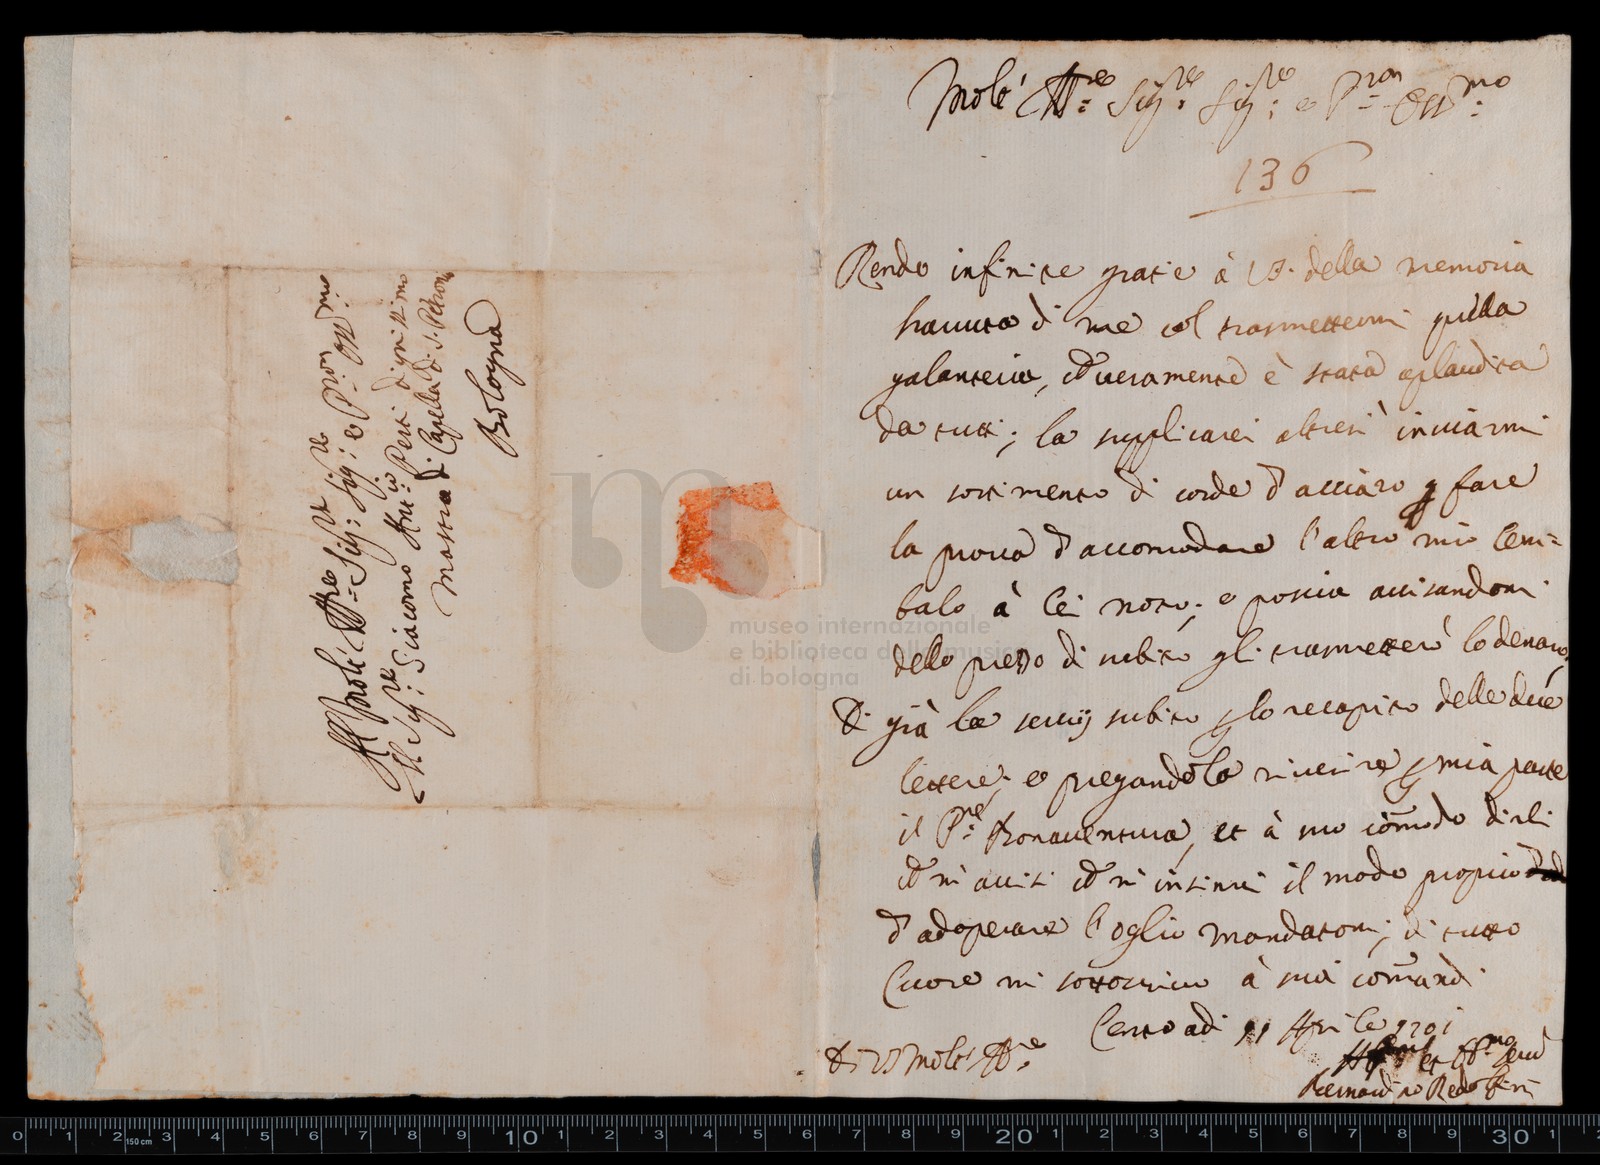 Molt' Ill.re Sig.re Sig.re e P.ron Oss.mo
136
Rendo infinite gratie à V.S. della memoria
hauuta di me col trasmettermi quella
galanteria, che ueramente è stata aplaudita
da tutti; la supplicarei altresì inuiarmi
un sortimento di corde d'acciaro p fare
la proua d'accomodare l'altro mio Cem=
balo à lei noto; e poscia auisandomi
dello prezzo di subito gli trasmetterò lo denaro,
Di già la seruij subito p lo recapito delle due
lettere; e pregandola riuerire p mia parte
il P.re Bonauentura, et à suo cōmodo dirli
che mi auisi che mi insinui il modo proprio
d'adoperare l'oglio mandatomi; di tutto
Cuore mi sottoscriuo à suoi comandi
Cento adi 11 Aprile 1701
Di VS Molt' Ill.re
et Obb.mo Seru
Bernardino Redolfini
All Molt' Ill.re Sig.re Sig.re e P.ron Oss.mo
Il Sig.re Giacomo Ant.o Perti dignissimo
Mastro di Capella di S. Petronio
Bologna
museo internazionale
e biblioteca della musica
di bologna
0 1 2 3 4 5 6 7 8 9 10 1 2 3 4 5 6 7 8 9 20 1 2 3 4 5 6 7 8 9 30 1
150 cm